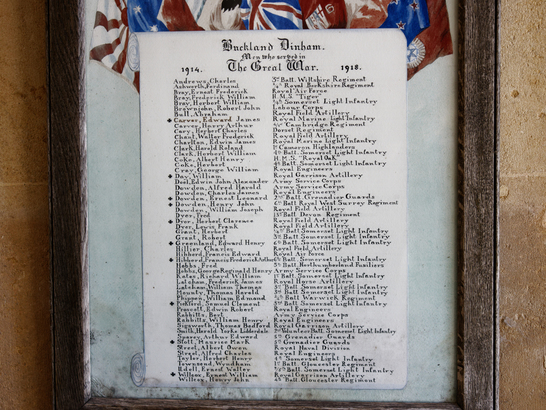 Buckland Dinham.
Men who served in
1914. The Great War. 1918.
Andrews, Charles 3rd Batt. Wiltshire Regiment
Ashworth, Ferdinand Royal Berkshire Regiment
Bray, Ernest Frederick Royal Air Force
Bray, Frederick William H.M.S. "Tiger"
Bray, Herbert William Somerset Light Infantry
Robert John Labour Corps
Bull, Abraham Royal Field Artillery
Carver, Edward James Royal Marine Light Infantry
Carver, Henry Arthur Cambridge Regiment
Cary, Herbert Charles Dorset Regiment
Chant, Walter Frederick Royal Field Artillery
Charlton, Edwin James Royal Marine Light Infantry
Clark, Harold Roland Cameron Highlanders
Clark, Herbert William Batt. Somerset Light Infantry
Coke, Albert Henry H.M.S. "Royal Oak"
Coke, Herbert Batt. Somerset Light Infantry
Cray, George William Royal Engineers
Day, William Royal Garrison Artillery
Edwin John Alexander Army Service Corps
Dowden, Alfred Harold Army Service Corps
Dowden, Charles James Royal Engineers
Dowden, Ernest Leonard 2nd Batt. Grenadier Guards
Dowden, Henry John Batt. Royal West Surrey Regiment
Dowden, William Joseph Royal Field Artillery
Dyer, Fred Batt. Devon Regiment
Dyer, Herbert Clarence Royal Field Artillery
Dyer, Lewis Frank Royal Field Artillery
Grant, Herbert Batt. Somerset Light Infantry
Grant, Robert Batt. Somerset Light Infantry
Greenland, Edward Henry 6th Batt. Somerset Light Infantry
Hillier, Charles Royal Field Artillery
Hibberd, Francis Edward Royal Air Force
Hibberd, Francis Frederick Arthur Batt. Somerset Light Infantry
Hobbs, Fred Batt. Northumberland Fusiliers
Hobbs, George Reginald Henry Army Service Corps
Richard William Batt. Somerset Light Infantry
Francis James Royal Horse Artillery
William Thomas Batt. Somerset Light Infantry
Thomas Harold Batt. Somerset Light Infantry
Phippen, William Edmund Batt. Warwick Regiment
Samuel Clement Batt. Somerset Light Infantry
Edwin Robert Royal Engineers
Rabbitts, Bert Army Service Corps
Rabbitts, William Henry Royal Engineers
Thomas Bedford Royal Garrison Artillery
Smith, Harold Batt. Somerset Light Infantry
Arthur Edward Grenadier Guards
Maurice Mark Grenadier Guards
Street, Albert Owen Royal Naval Division
Street, Alfred Charles Royal Engineers
Taylor, Herbert Henry Somerset Light Infantry
Frederick Batt. Gloucester Regiment
Ernest Walter Batt. Somerset Light Infantry
Ernest William Royal Garrison Artillery
Henry John Batt. Gloucester Regiment